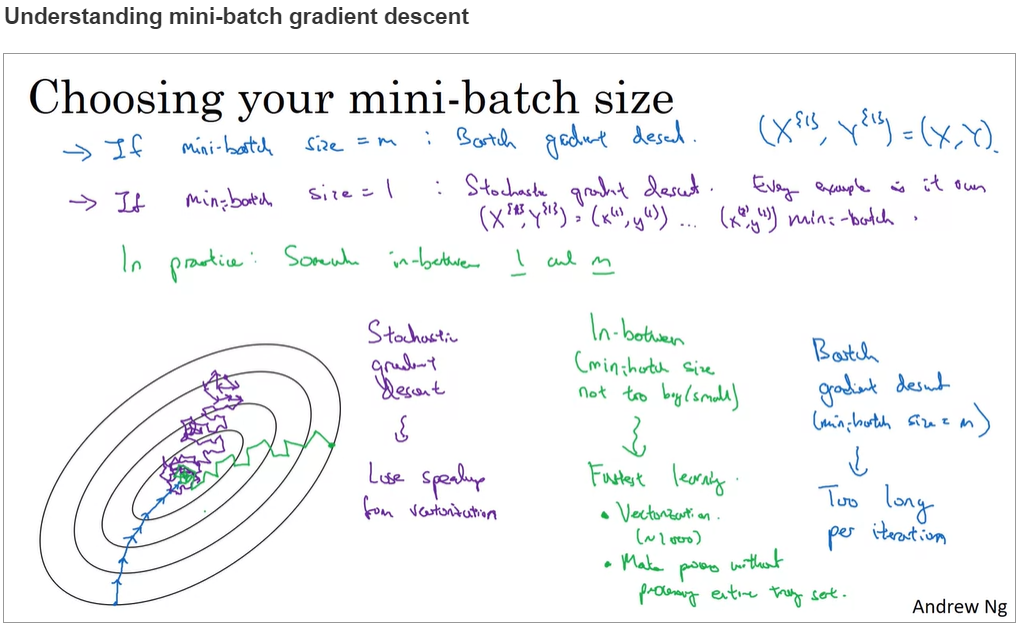 Understanding mini-batch gradient descent
Choosing your mini-batch size
→ If mini-batch size = m : Batch gradient descent. (X^{1}, Y^{1}) = (X, Y).
→ If mini-batch size = 1 : Stochastic gradient descent. Every example is it own
(X^{1}, Y^{1}) = (x^(1), y^(1)) ... (x^(2), y^(2)) mini-batch.
In practice: Somewhere in-between 1 and m
Stochastic
gradient
descent
Lose speedup
from vectorization
In-between
(mini-batch size
not too big/small)
Fastest learning.
• Vectorization.
(~1000)
• Make progress without
processing entire training set.
Batch
gradient descent
(mini-batch size = m)
Too long
per iteration
Andrew Ng